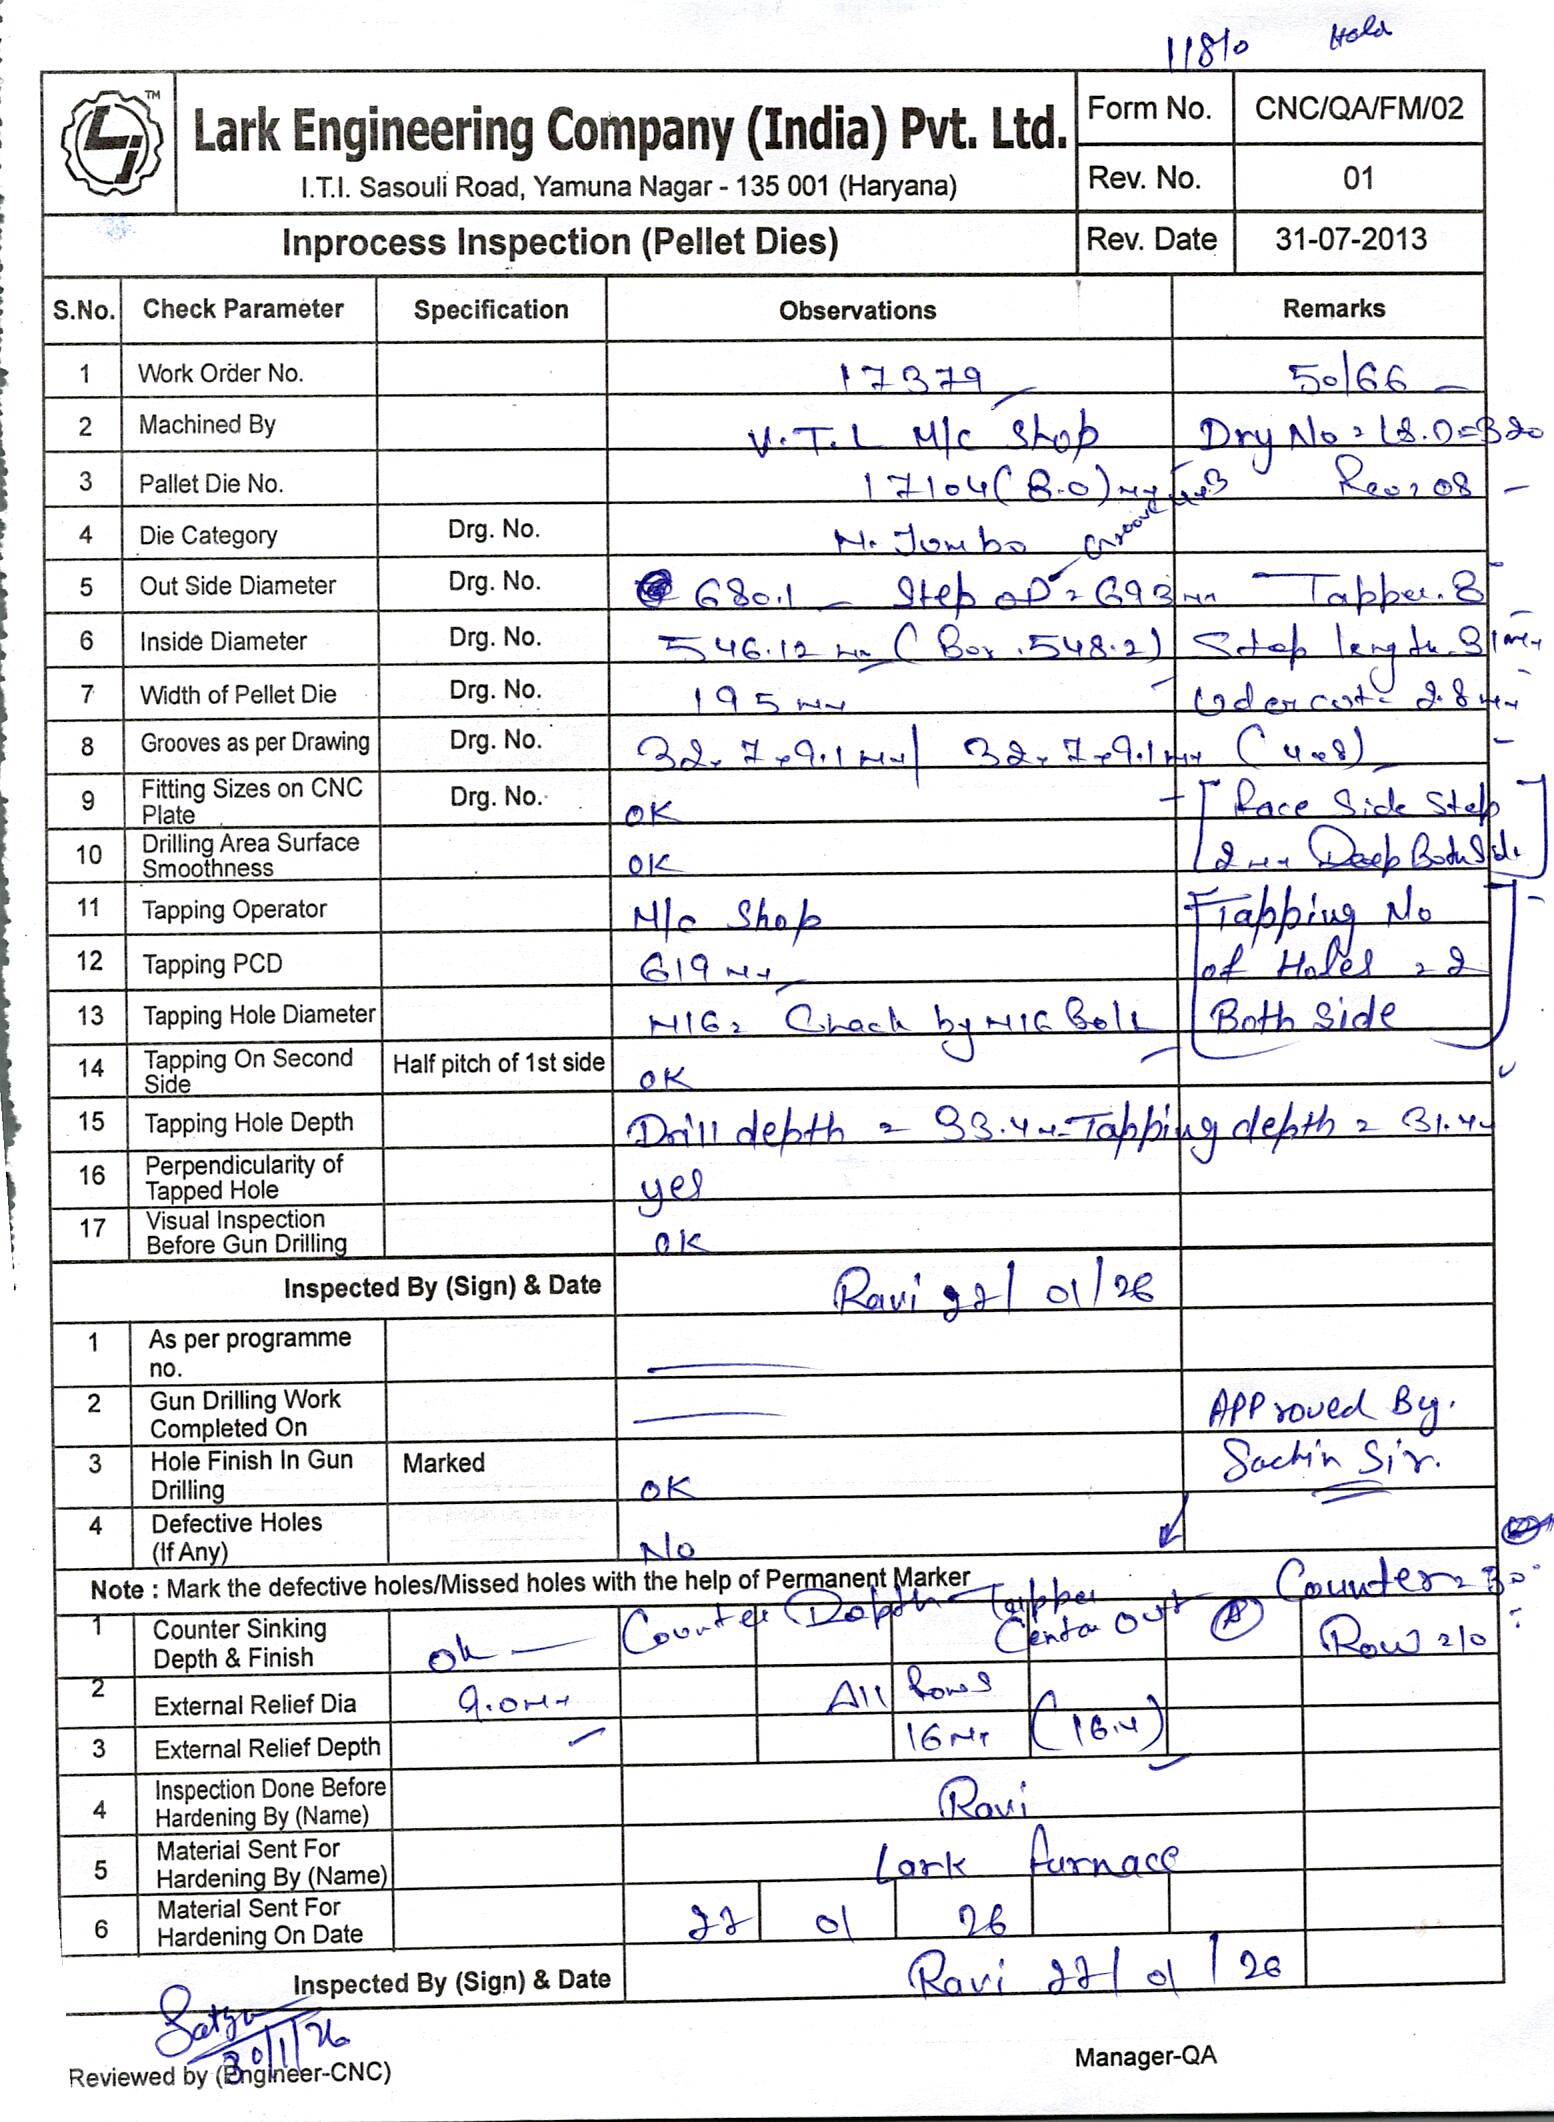 11810 Hold
TM
Lark Engineering Company (India) Pvt. Ltd.
I.T.I. Sasouli Road, Yamuna Nagar - 135 001 (Haryana)
Form No. CNC/QA/FM/02
Rev. No. 01
Inprocess Inspection (Pellet Dies) Rev. Date 31-07-2013
S.No. Check Parameter Specification Observations Remarks
1 Work Order No. 17379 50/66
2 Machined By V.T.L M/c Shop Drg No = LS.D=320
3 Pallet Die No. 17104 (8.0) mm Rev = 08
4 Die Category Drg. No. M. Jumbo Groove
5 Out Side Diameter Drg. No. 680.1 - Step OD = 693 mm Tapper. 8
6 Inside Diameter Drg. No. 546.12 mm (Bor. 548.2) Step length. 31 mm
7 Width of Pellet Die Drg. No. 195 mm Udercut - 2.8 mm
8 Grooves as per Drawing Drg. No. 32 x 7 x 9.1 mm / 32 x 7 x 9.1 mm (4x8)
9 Fitting Sizes on CNC Plate Drg. No. OK [Race Side Step
10 Drilling Area Surface Smoothness OK 2 mm Deep Both Side]
11 Tapping Operator M/c Shop [Tapping No
12 Tapping PCD 619 mm of Holes = 2
13 Tapping Hole Diameter M16 = Chack by M16 Bolt Both Side]
14 Tapping On Second Side Half pitch of 1st side OK
15 Tapping Hole Depth Drill depth = 33.4 - Tapping depth = 31.4
16 Perpendicularity of Tapped Hole yes
17 Visual Inspection Before Gun Drilling OK
Inspected By (Sign) & Date Ravi 22/01/26
1 As per programme no. —
2 Gun Drilling Work Completed On — APProved By.
3 Hole Finish In Gun Drilling Marked OK Sachin Sir.
4 Defective Holes (If Any) No
Note : Mark the defective holes/Missed holes with the help of Permanent Marker Counter = 30°
1 Counter Sinking Depth & Finish ok — Counter Depth - Tapper Center Out (A) Row 210
2 External Relief Dia 9.0 mm All Rows
3 External Relief Depth 16 mm (16.4)
4 Inspection Done Before Hardening By (Name) Ravi
5 Material Sent For Hardening By (Name) Lark furnace
6 Material Sent For Hardening On Date 22 01 26
Inspected By (Sign) & Date Ravi 22/01/26
30/1/26
Reviewed by (Engineer-CNC) Manager-QA